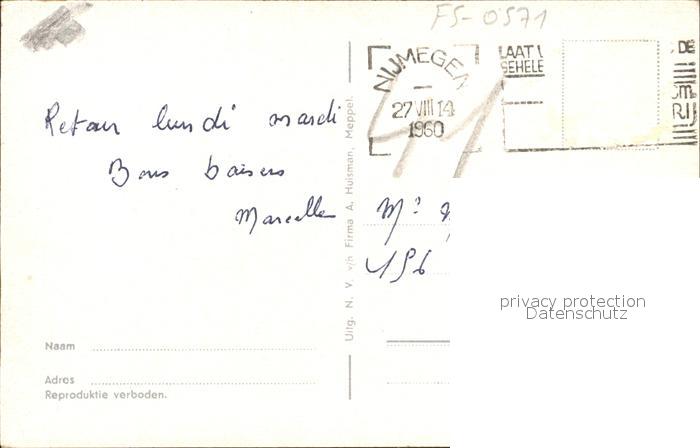 FS-0571
NIJMEGEN
27 VIII 14
1960
LAAT
GEHELE
DE
Retour lundi mardi
Bons baisers
Marcelle
196
Uitg. N. V. v/h Firma A. Huisman, Meppel.
privacy protection
Datenschutz
Naam
Adres
Reproduktie verboden.